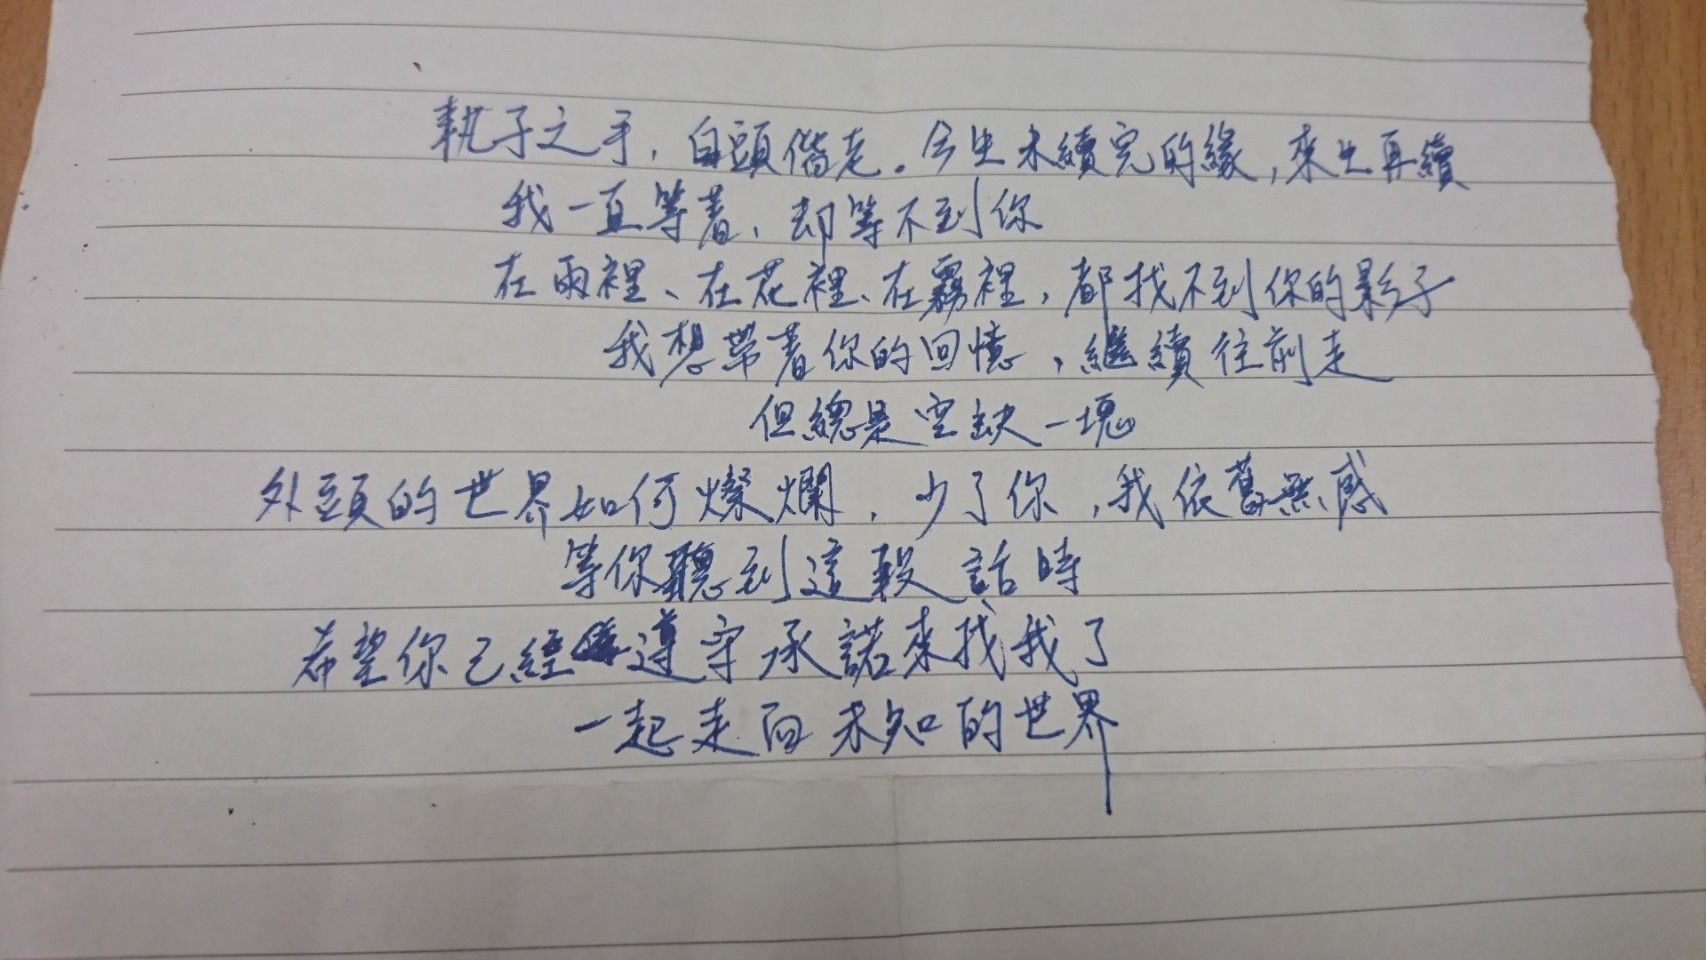 執子之手,白頭偕老。今生未續完的緣,來生再續
我一直等著、却等不到你
在雨裡、在花裡、在霧裡,都找不到你的影子
我想帶著你的回憶,繼續往前走
但總是空缺一塊
外頭的世界如何燦爛,少了你,我依舊無感
等你聽到這段話時
希望你已經遵守承諾來找我了
一起走向未知的世界